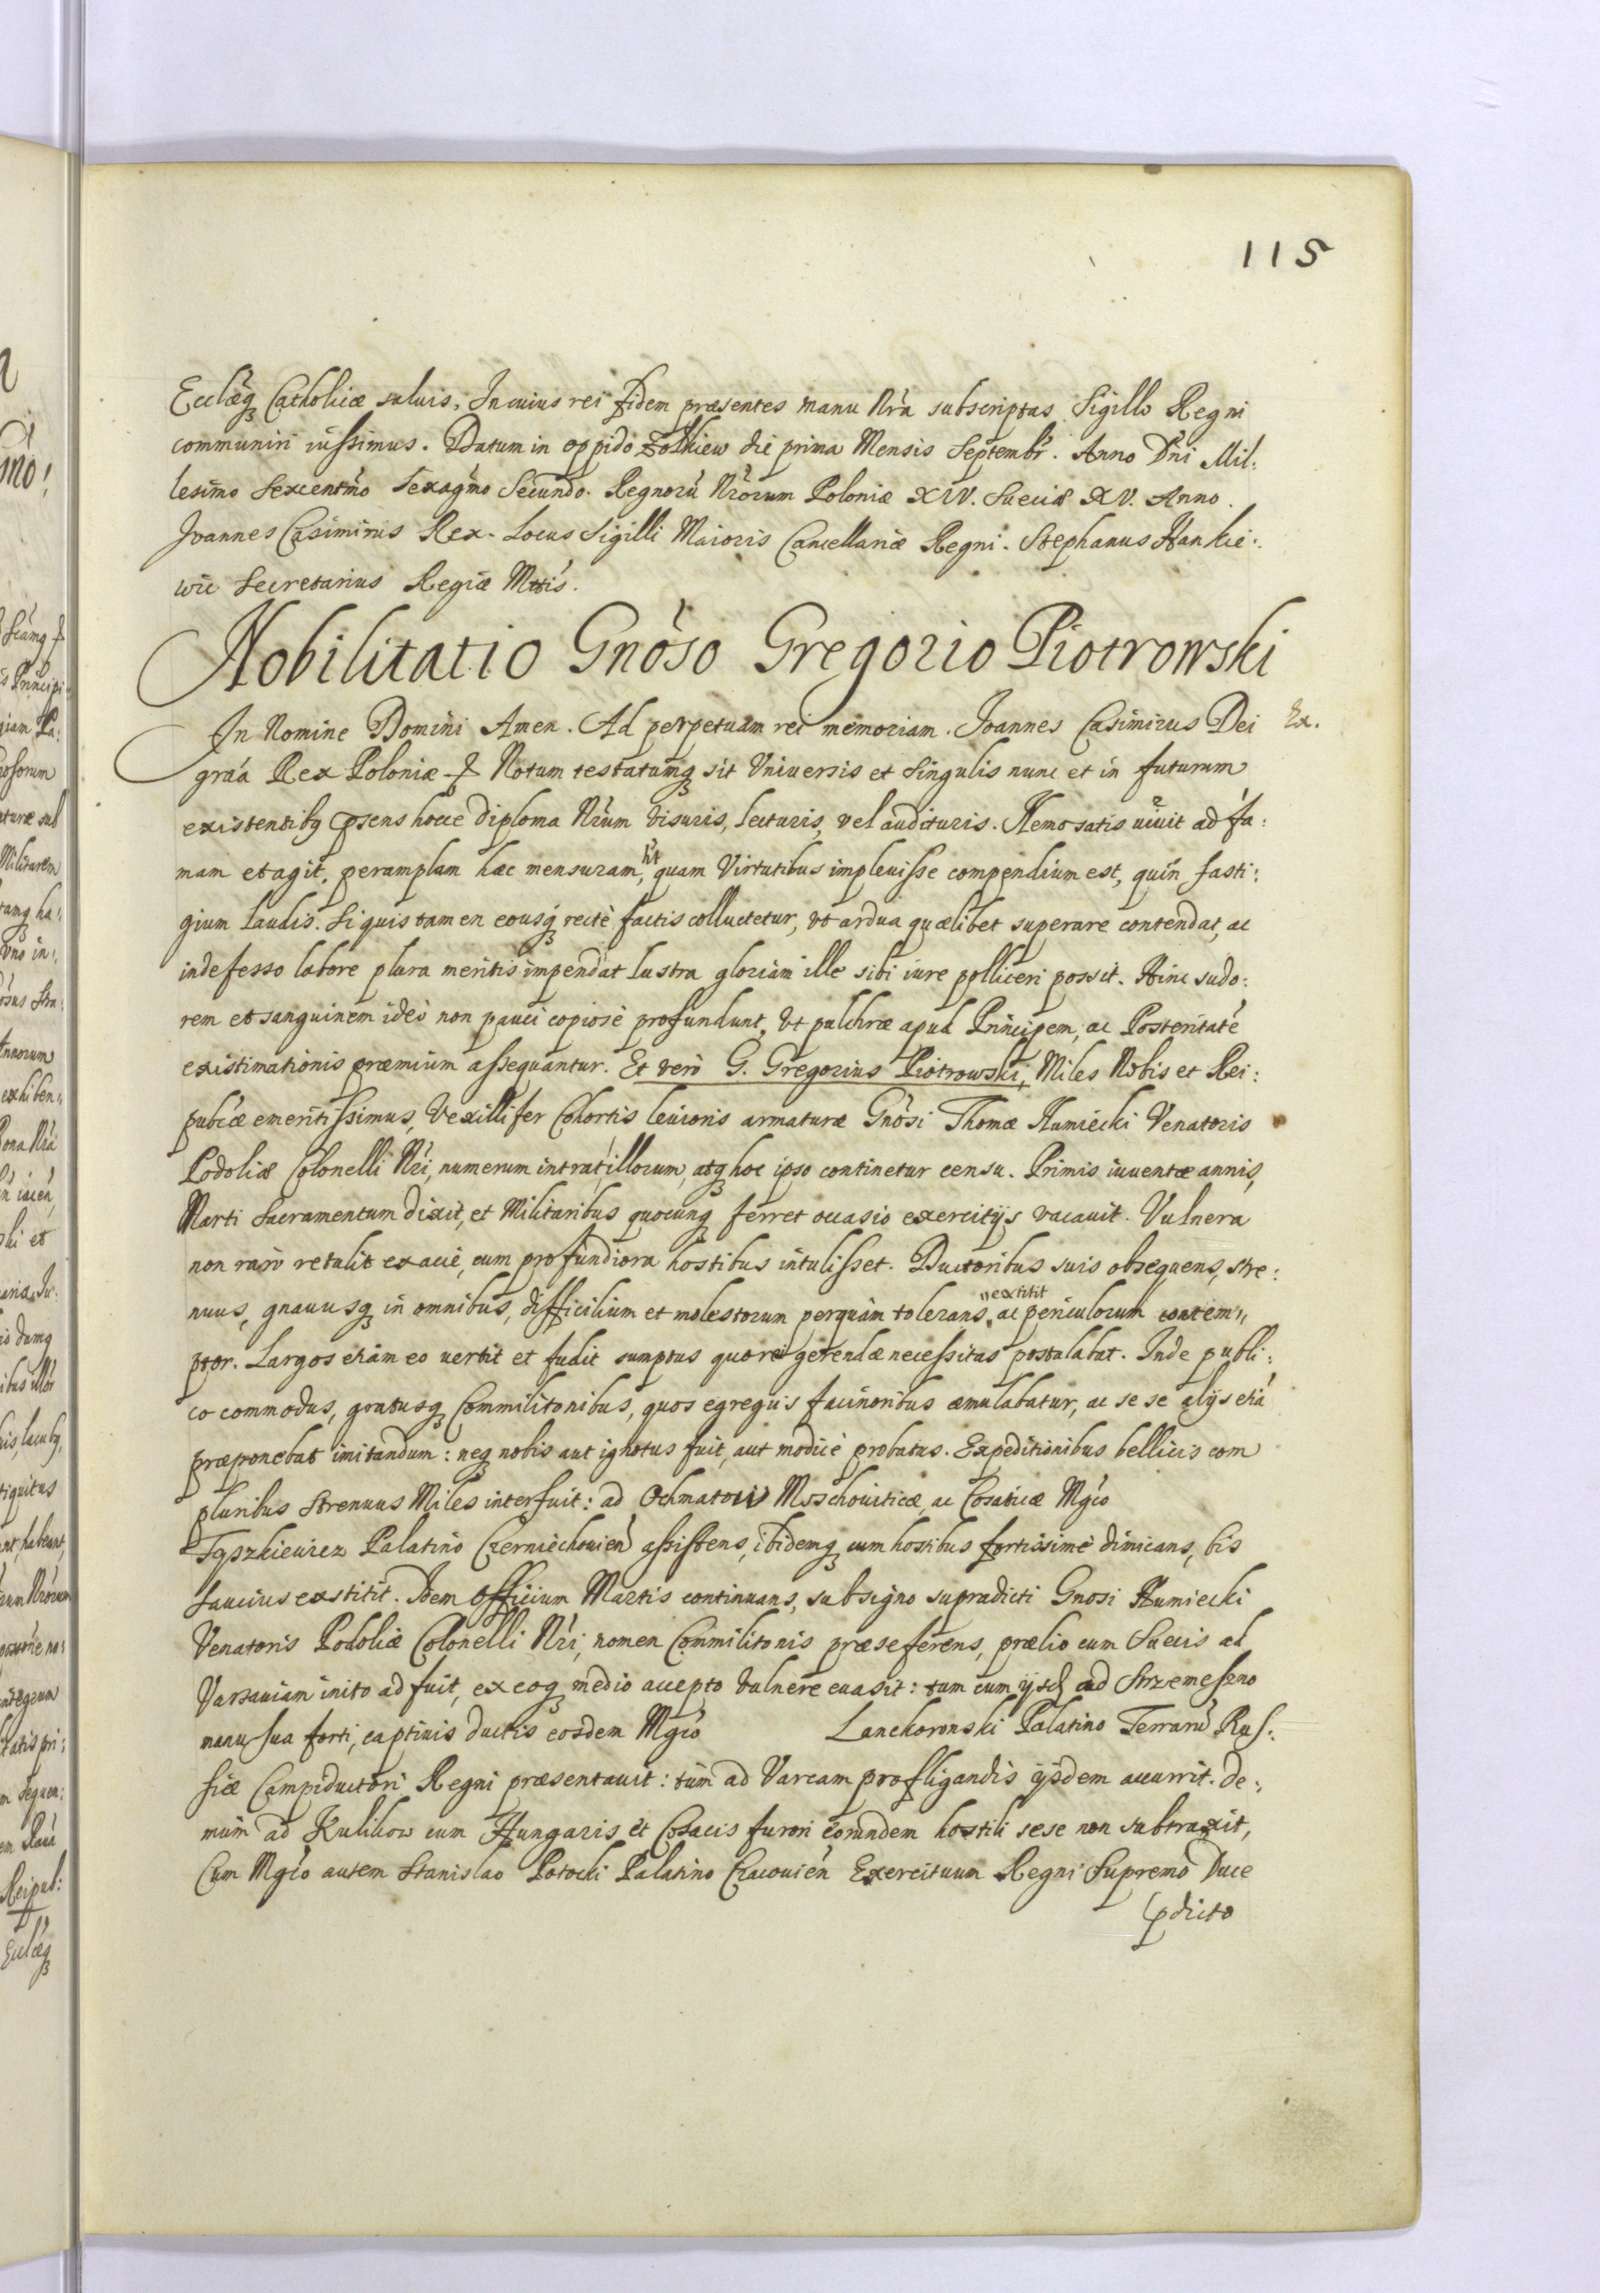 115
Ecclæq̃ Catholicæ saluis, In cuius rei fidem præsentes manu Nr̃a subscriptas Sigillo Regni
communiri iussimus. Datum in oppido Zolkiew die prima Mensis Septembr̃. Anno Dn̄i Mil:
lesimo Sexcentm̃o Sexagm̃o Secundo. Regnorũ Nr̃orum Poloniæ XIV. Sueciæ XV. Anno.
Joannes Casimirus Rex. Locus Sigilli Maioris Cancellariæ Regni. Stephanus Hankie:
wic Secretarius Regiæ Mttis.
Nobilitatio Gnoso Gregorio Piotrowski
In Nomine Domini Amen. Ad perpetuam rei memoriam. Joannes Casimirus Dei Ex.
graã Rex Poloniæ & Notum testatumq̃ sit Vniuersis et singulis nunc et in futurum
existentibq̃ p̃sens hocce diploma Nr̃um visuris, lecturis, vel audituris. Nemo satis uiuit ad fa:
mam et agit, peramplam hæc mensuram, ht quam Virtutibus impleuisse compendium est, quin fasti:
gium laudis. Si quis tamen eousq̃ rectè factis colluctetur, vt ardua quælibet superare contendat, ac
indefesso labore plura meritis impendat lustra gloriam ille sibi iure polliceri possit. Hinc sudo:
rem et sanguinem ideò non pauci copiosè profundunt, vt pulchræ apud Principem, ac Posteritatẽ
existimationis præmium assequantur. Et verò G. Gregorius Piotrowski, Miles Nobis et Rei:
pubcæ emeritissimus, Vexillifer Cohortis leuioris armaturæ Gnosi Thomæ Humiecki Venatoris
Podoliæ Colonelli Nr̃i, numerum intrat illorum, atq̃ hoc ipso continetur censu. Primis iuuentæ annis,
Marti Sacramentum dixit, et Militaribus quocunq̃ ferret occasio exercitijs vacauit. Vulnera
non rarò retulit ex acie, cum profundiora hostibus intulisset. Ductoribus suis obsequens, stre:
nuus, gnauusq̃ in omnibus, difficilium et molestorum perquàm tolerans, extitit ac periculorum contem:
ptor. Largos etiam eo vertit et fudit sumptus quo rei gerendæ necessitas postulabat. Inde publi:
co commodus, gratusq̃ Commilitonibus, quos egregijs facinoribus æmulabatur, ac se se alijs etiã
præponebat imitandum: neq̃ nobis aut ignotus fuit, aut modicè probatus. Expeditionibus bellicis com
pluribus Strenuus Miles interfuit: ad Ochmatow Moschouiticæ, ac Cosaticæ Mgcõ
Tyszkiewicz Palatino Czerniechouien̄ assistens, ibidemq̃ cum hostibus fortissimè dimicans, bis
saucius exstitit. Idem officium Martis continuans, sub signo supradicti Gnosi Humiecki
Venatoris Podoliæ Colonelli Nr̃i, nomen Commilitonis præseferens, prælio cum Suecis ad
Varsauiam inito adfuit, ex eoq̃ medio accepto vulnere euasit: tum cum ijsd ad Strzemeszno
manu sua forti, captiuis ductis eosdem Mgcõ Lanckoronski Palatino Terrarũ Rus:
siæ Campiductori Regni præsentauit: tùm ad Varcam profligandis ijsdem accurrit. De:
mùm ad Kulikow cum Hungaris et Cosacis furori eorundem hostili sese non subtraxit,
Cum Mgcõ autem Stanislao Potocki Palatino Cracouien̄ Exercituum Regni Supremo Duce
p̃dicto